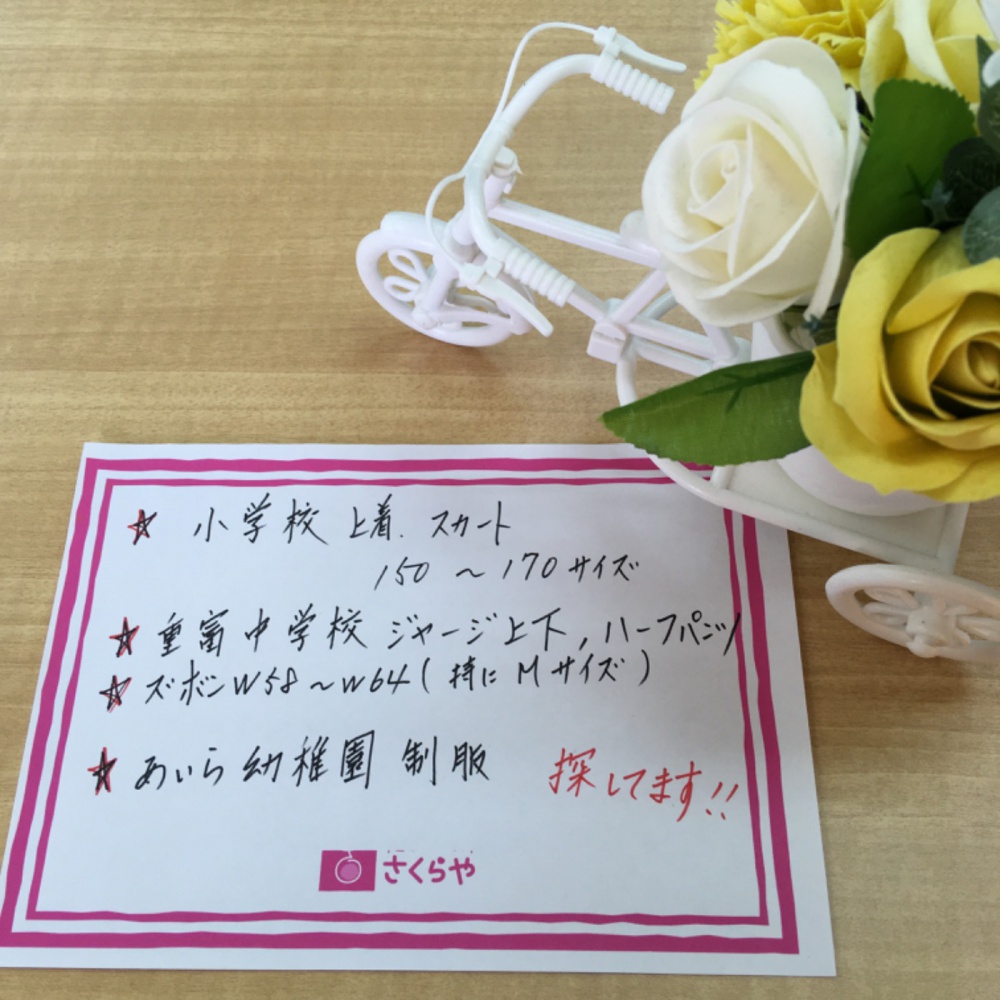 ☆ 小学校 上着. スカート
150 ~ 170 サイズ
☆ 重富中学校 ジャージ上下, ハーフパンツ
☆ ズボンW58~W64(特にMサイズ)
☆ あいら幼稚園 制服
探してます!!
さくらや